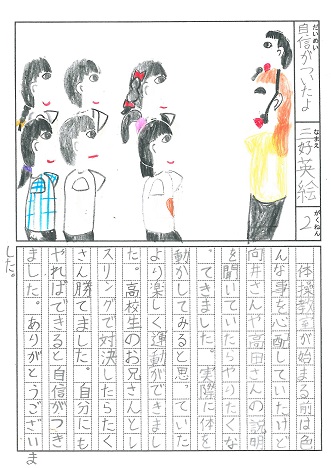 だいめい
自信がついたよ
なまえ
三好英絵
がくねん
2
体操教室が始まる前は色
んな事を心配していたけど
向井さんや高田さんの説明
を聞いていたらやりたくな
ってきました。実際に体を
動かしてみると思っていた
より楽しく運動ができまし
た。高校生のお兄さんとレ
スリングで対決したらたく
さん勝てました。自分にも
やればできると自信がつき
ました。ありがとうございま
した。